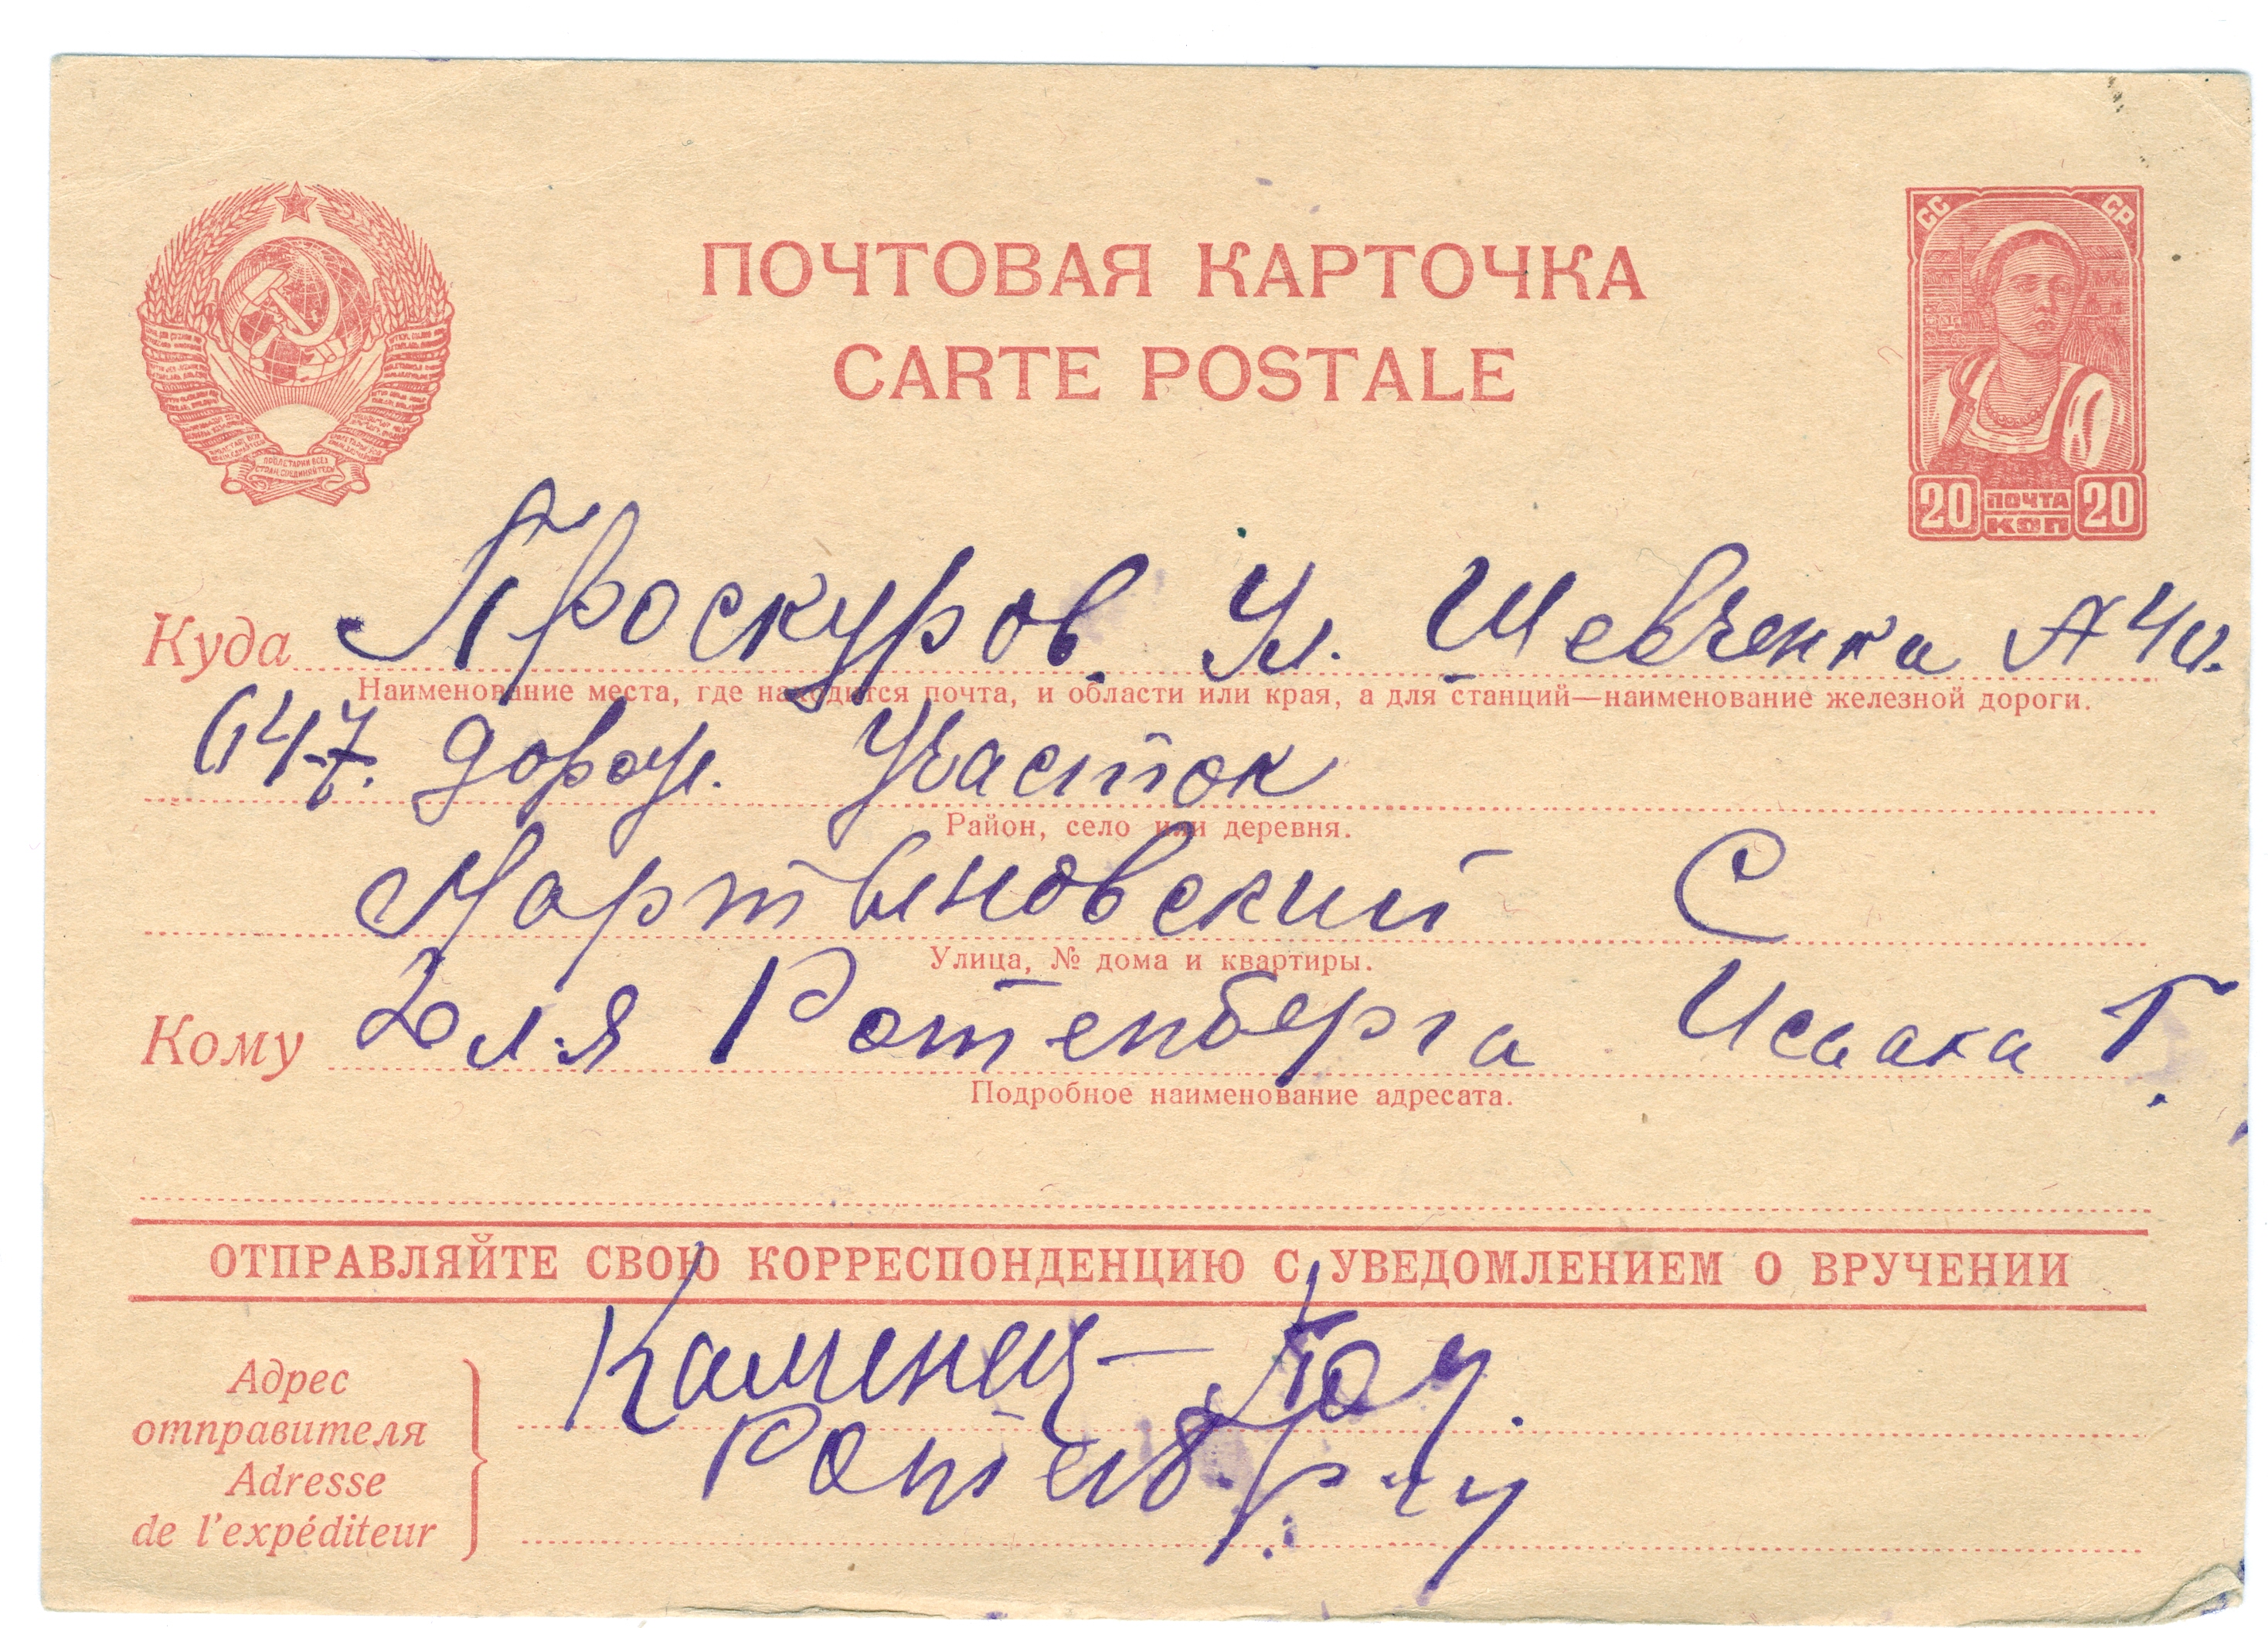 СС СР
ПОЧТОВАЯ КАРТОЧКА
CARTE POSTALE
ПРОЛЕТАРИИ ВСЕХ
СТРАН, СОЕДИНЯЙТЕСЬ
20 ПОЧТА КОП 20
Куда Проскуров Ул. Шевченка
Наименование места, где находится почта, и области или края, а для станций—наименование железной дороги.
647. дорож. Участок
Район, село или деревня.
Мартыновский С
Улица, № дома и квартиры.
Кому Для Ротенберга Исаака Г.
Подробное наименование адресата.
ОТПРАВЛЯЙТЕ СВОЮ КОРРЕСПОНДЕНЦИЮ С УВЕДОМЛЕНИЕМ О ВРУЧЕНИИ
Адрес
отправителя
Adresse
de l'expéditeur
Каменец — Под.